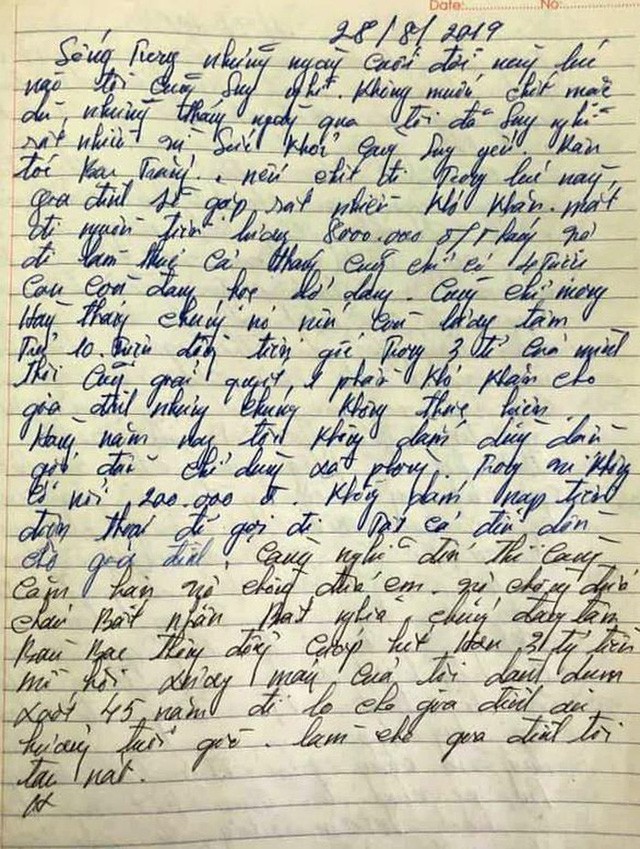 Date: No:
28/8/2019
Sống Trong những ngày cuối đời này lúc
nào tôi cũng suy nghĩ. Không muốn chết mặc
dù, những tháng ngày qua tôi đã suy nghĩ
rất nhiều sức khỏe suy yếu.
nếu chết đi Trong lúc này,
gia đình sẽ gặp rất nhiều khó khăn. mất
đi nguồn tiền lương 8000.000 đ/tháng
đi làm thuê cả tháng cũng chỉ có 4 Triệu
Con còn đang học dở dang. Cũng chỉ mong
Hàng tháng chúng nó lương tâm
Trả 10. Triệu đồng tiền gốc Trong 3 tỉ của mình
Thì cũng giải quyết, 1 phần khó khăn cho
gia đình nhưng chúng không thực hiện.
Hàng năm nay tôi không dám dùng dầu
gội đầu chỉ dùng xà phòng. Trong ví không
có nổi 200.000 đ. Không dám nạp tiền
điện thoại để gọi đi Tất cả để dồn
cho gia đình. Càng nghĩ đến thì Càng
Căm hận vợ chồng đứa em. vợ chồng đứa
cháu Bất nhân Bất nghĩa, chúng đang tâm
Bàn Bạc thông đồng cướp hết Hơn 3 tỷ tiền
mồ hôi xương máu của tôi dành dụm
suốt 45 năm để lo cho gia đình
hưởng tuổi già. làm cho gia đình tôi
tan nát.